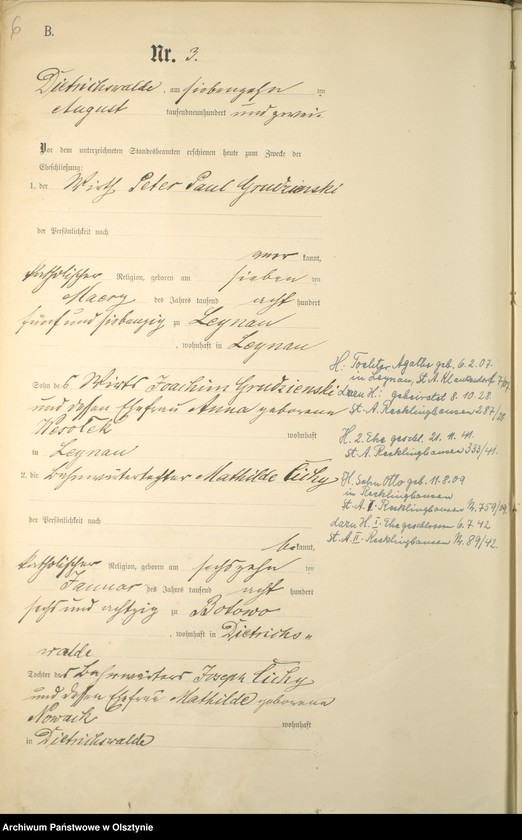 6
B.
Nr. 3.
Dietrichswalde, am siebenzehn ten
August tausendneunhundert und zwei.
Vor dem unterzeichneten Standesbeamten erschienen heute zum Zwecke der
Eheschließung:
1. der Wirth Peter Paul Grudzienski
der Persönlichkeit nach
kannt,
katholischer Religion, geboren am sieben ten
Maerz des Jahres tausend acht hundert
fünf und siebenzig zu Leynau
, wohnhaft in Leynau
Sohn des Wirts Joachim Grudzienski
und dessen Ehefrau Anna geborene
Wesolek wohnhaft
in Leynau
2. die Bahnwärtertochter Mathilde Cichy
der Persönlichkeit nach
bekannt,
katholischer Religion, geboren am sechszehn ten
Januar des Jahres tausend acht hundert
sechs und achtzig zu
, wohnhaft in Dietrichs=
walde
Tochter des Bahnwärters Joseph Cichy
und dessen Ehefrau Mathilde geborene
Nowack wohnhaft
in Dietrichswalde
H: Tochter Agathe geb. 6.2.07.
in Leynau, St. A. Klaukendorf
dazu H: geheiratet 8.10.28
St. A. Recklinghausen 287/28
H. 2. Ehe geschl. 21.11.41.
St. A. Recklinghausen 333/41.
H. Sohn Otto geb. 11.8.09
in Recklinghausen
St. A. I Recklinghausen Nr. 759/09.
dazu H. I. Ehe geschlossen 6.7.42
St. A. II Recklinghausen Nr. 89/42.
Archiwum Państwowe w Olsztynie